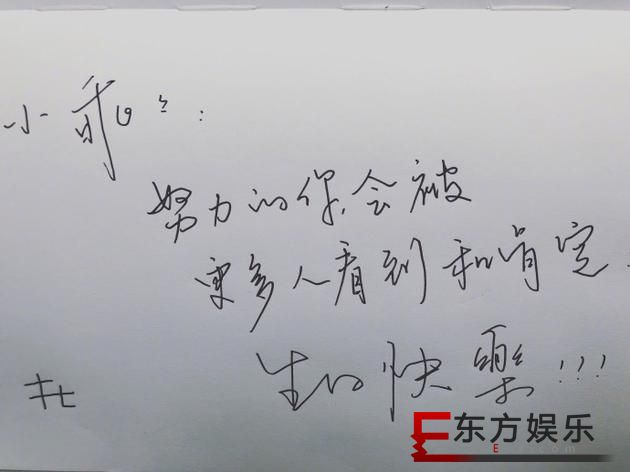 小乖:
努力的你,会被
更多人看到和肯定.
生日快樂!!!
东方娱乐